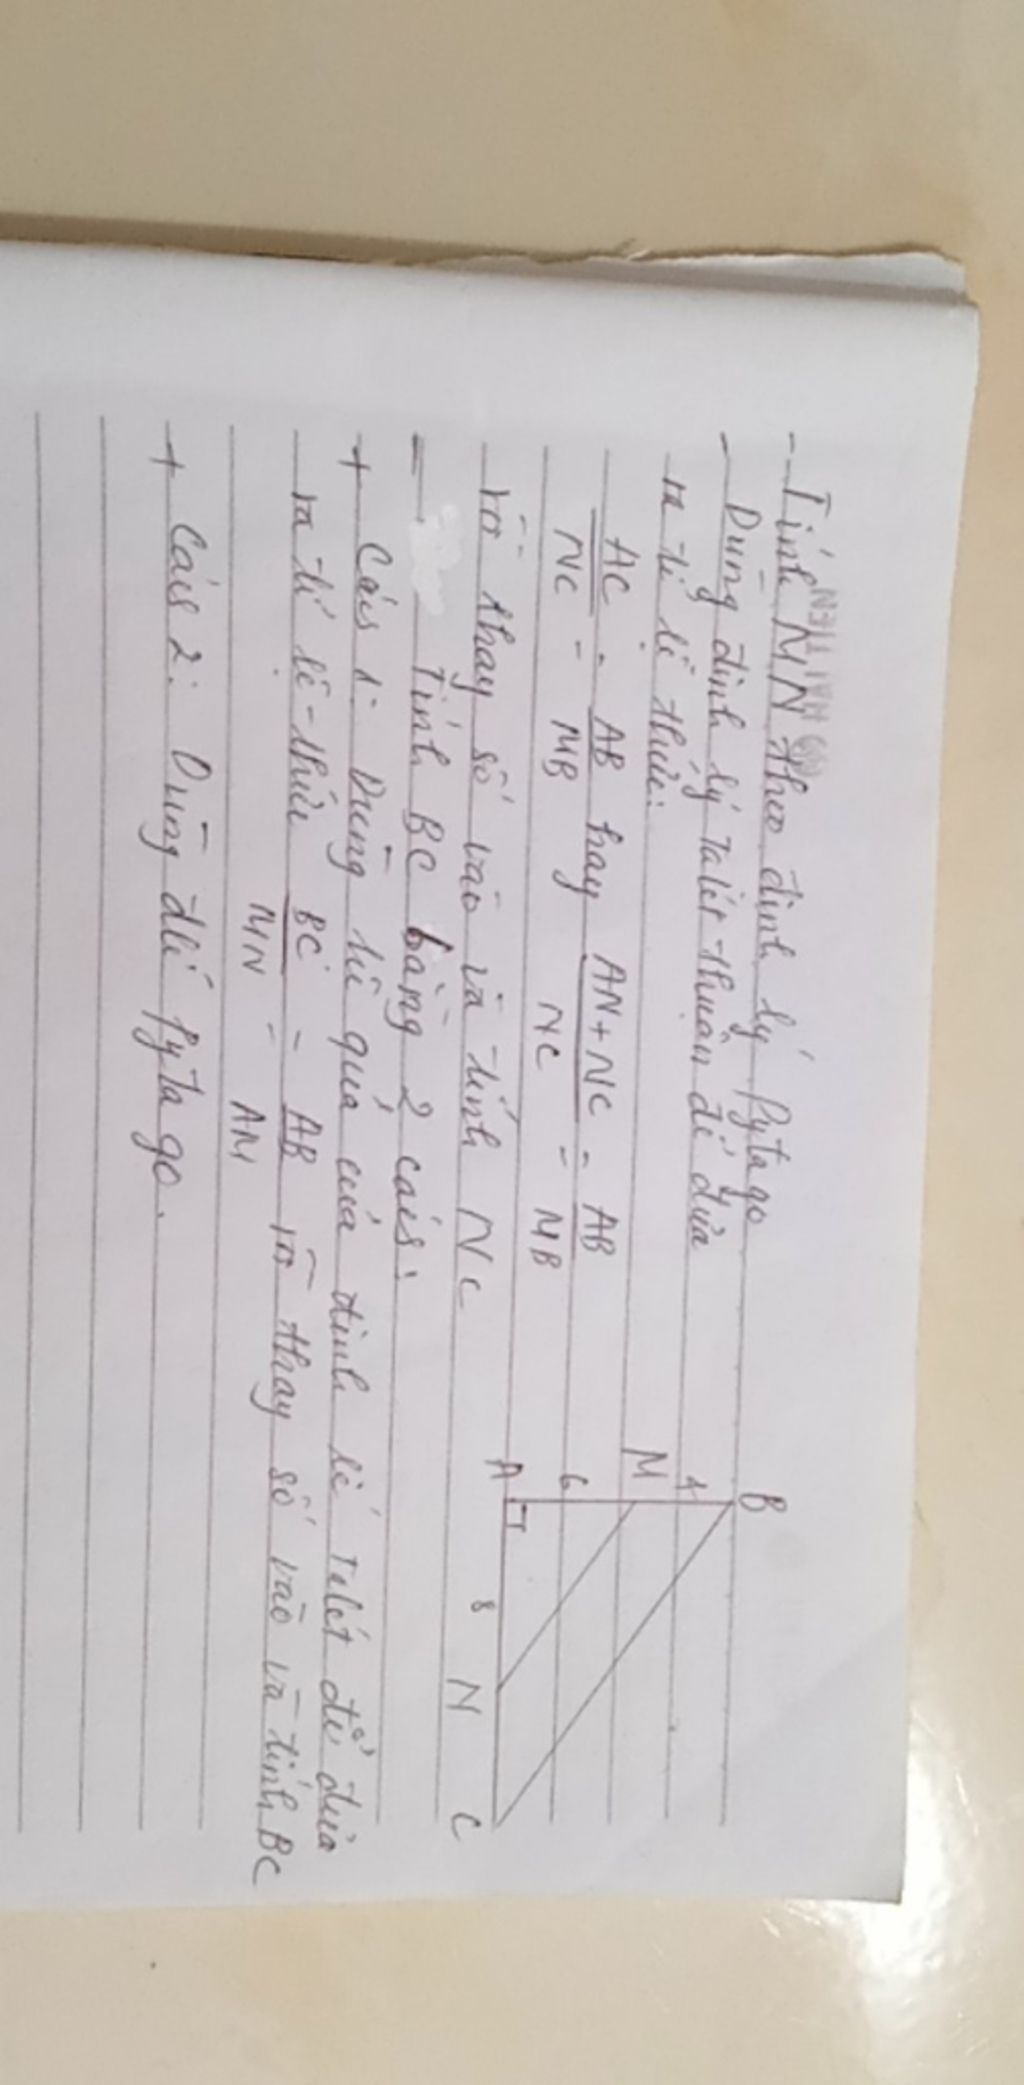 - Tính MN theo định lý Pytago
- Dùng định lý Talét thuận để đưa
ra tỉ lệ thức:
AC = AB hay AN+NC = AB
NC = MB NC = MB
rồi thay số vào và tính NC
- Tính BC bằng 2 cách:
+ Cách 1: Dùng hệ quả của định lí Talét để đưa
ra tỉ lệ thức BC = AB rồi thay số vào và tính BC
MN = AM
+ Cách 2: Dùng đlí Pytago.
B
4
M
6
A
8
N
C